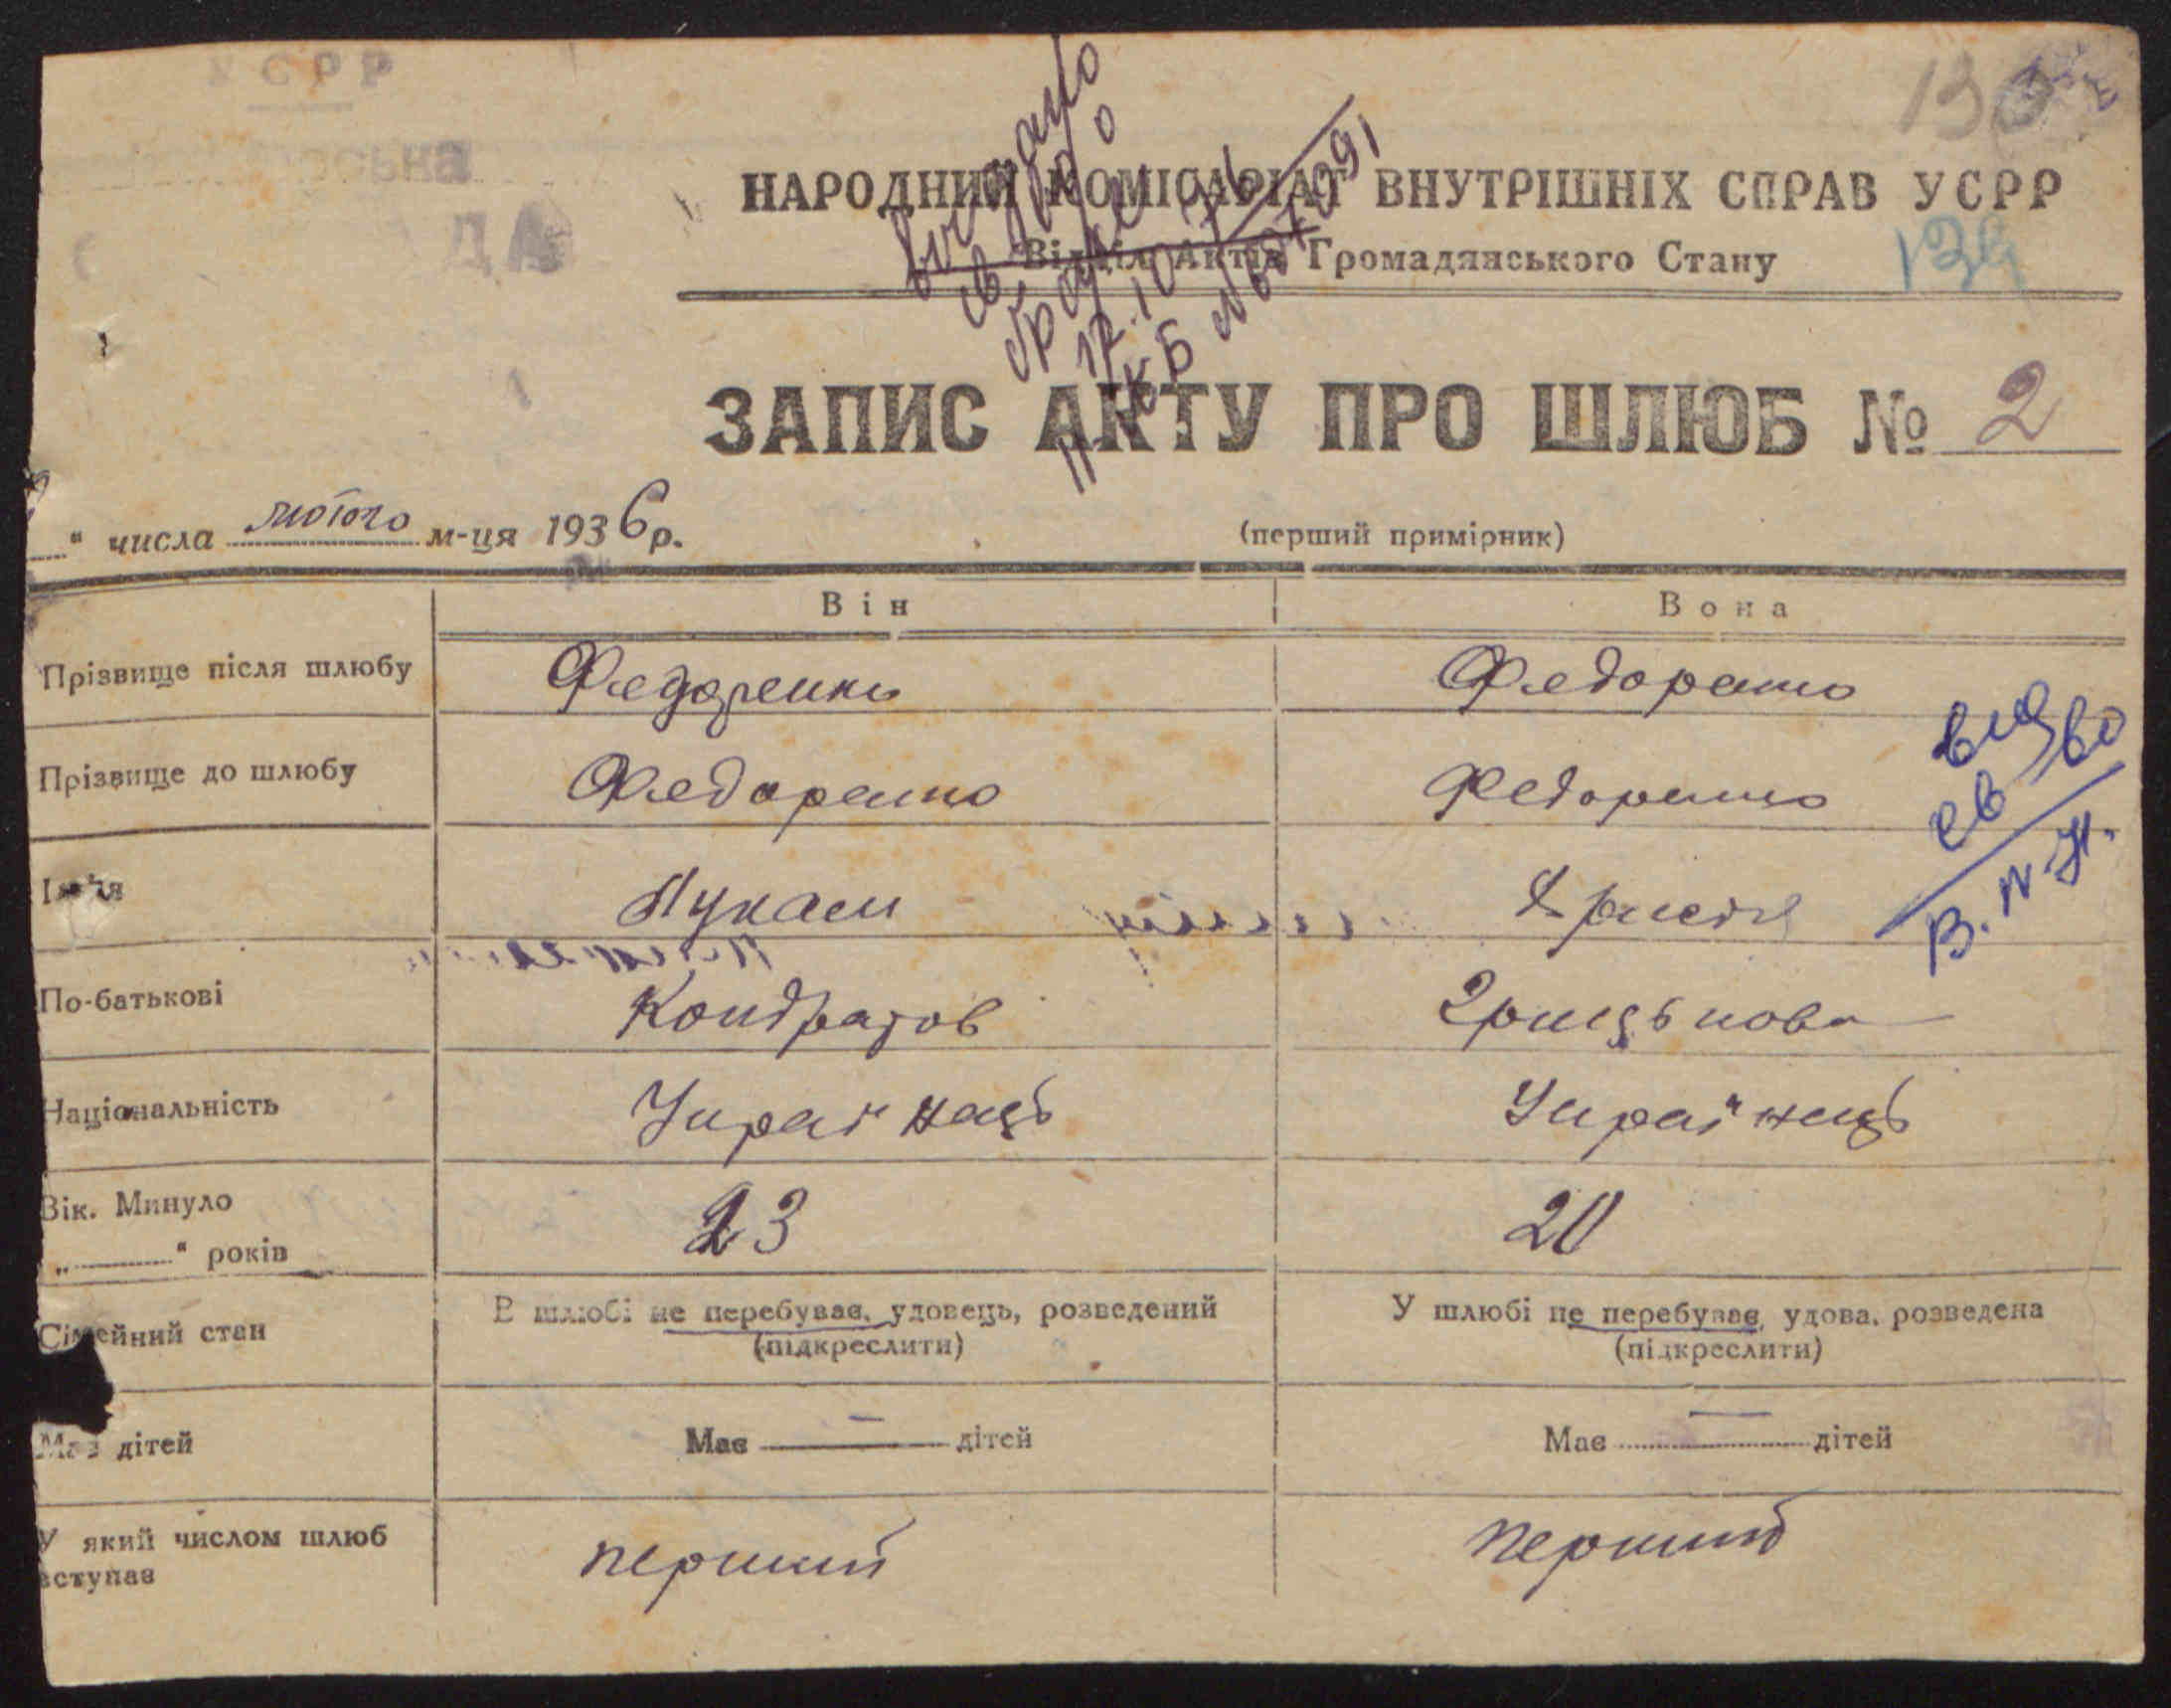 НАРОДНИЙ КОМІСАРІАТ ВНУТРІШНІХ СПРАВ УСРР
Відділ Актів Громадянського Стану
139
ЗАПИС АКТУ ПРО ШЛЮБ № 2
" числа лютого м-ця 1936 р.
(перший примірник)
Він Вона
Прізвище після шлюбу Федоренко Федоренко
Прізвище до шлюбу Федоренко Федоренко
Ім'я Лукаш Христя
По-батькові Кондратов Грицькова
Національність Українець Українець
Вік. Минуло 23 20
„ " років
Сімейний стан В шлюбі не перебуває, удовець, розведений У шлюбі не перебуває, удова, розведена
(підкреслити) (підкреслити)
Має дітей Має — дітей Має — дітей
У який числом шлюб перший перший
вступає